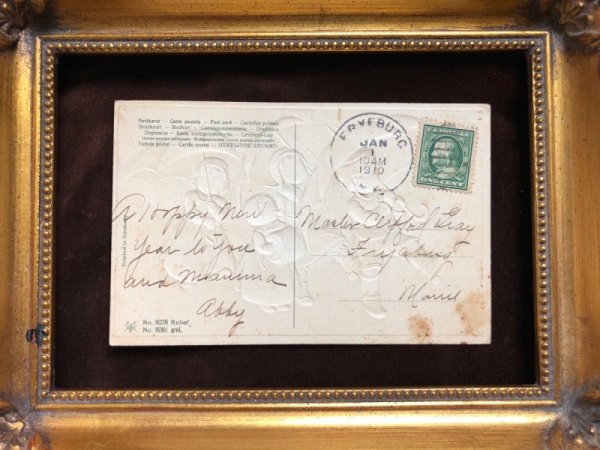 Postkarte – Carte postale – Post card – Cartolina postale
Dopisnice – Karta korespondencyjna – Levelező-Lap
Tarjeta postal – Cartão postal – ОТКРЫТОЕ ПИСЬМО
FRYEBURG
JAN
1
10AM
1910
U.S. POSTAGE
ONE CENT
A Happy New
Year to you
and Mamma
Abby
Master Clifford Gray
Fryeburg
Maine
Printed in Germany
No. 8078 Relief
No. 8081 gel.